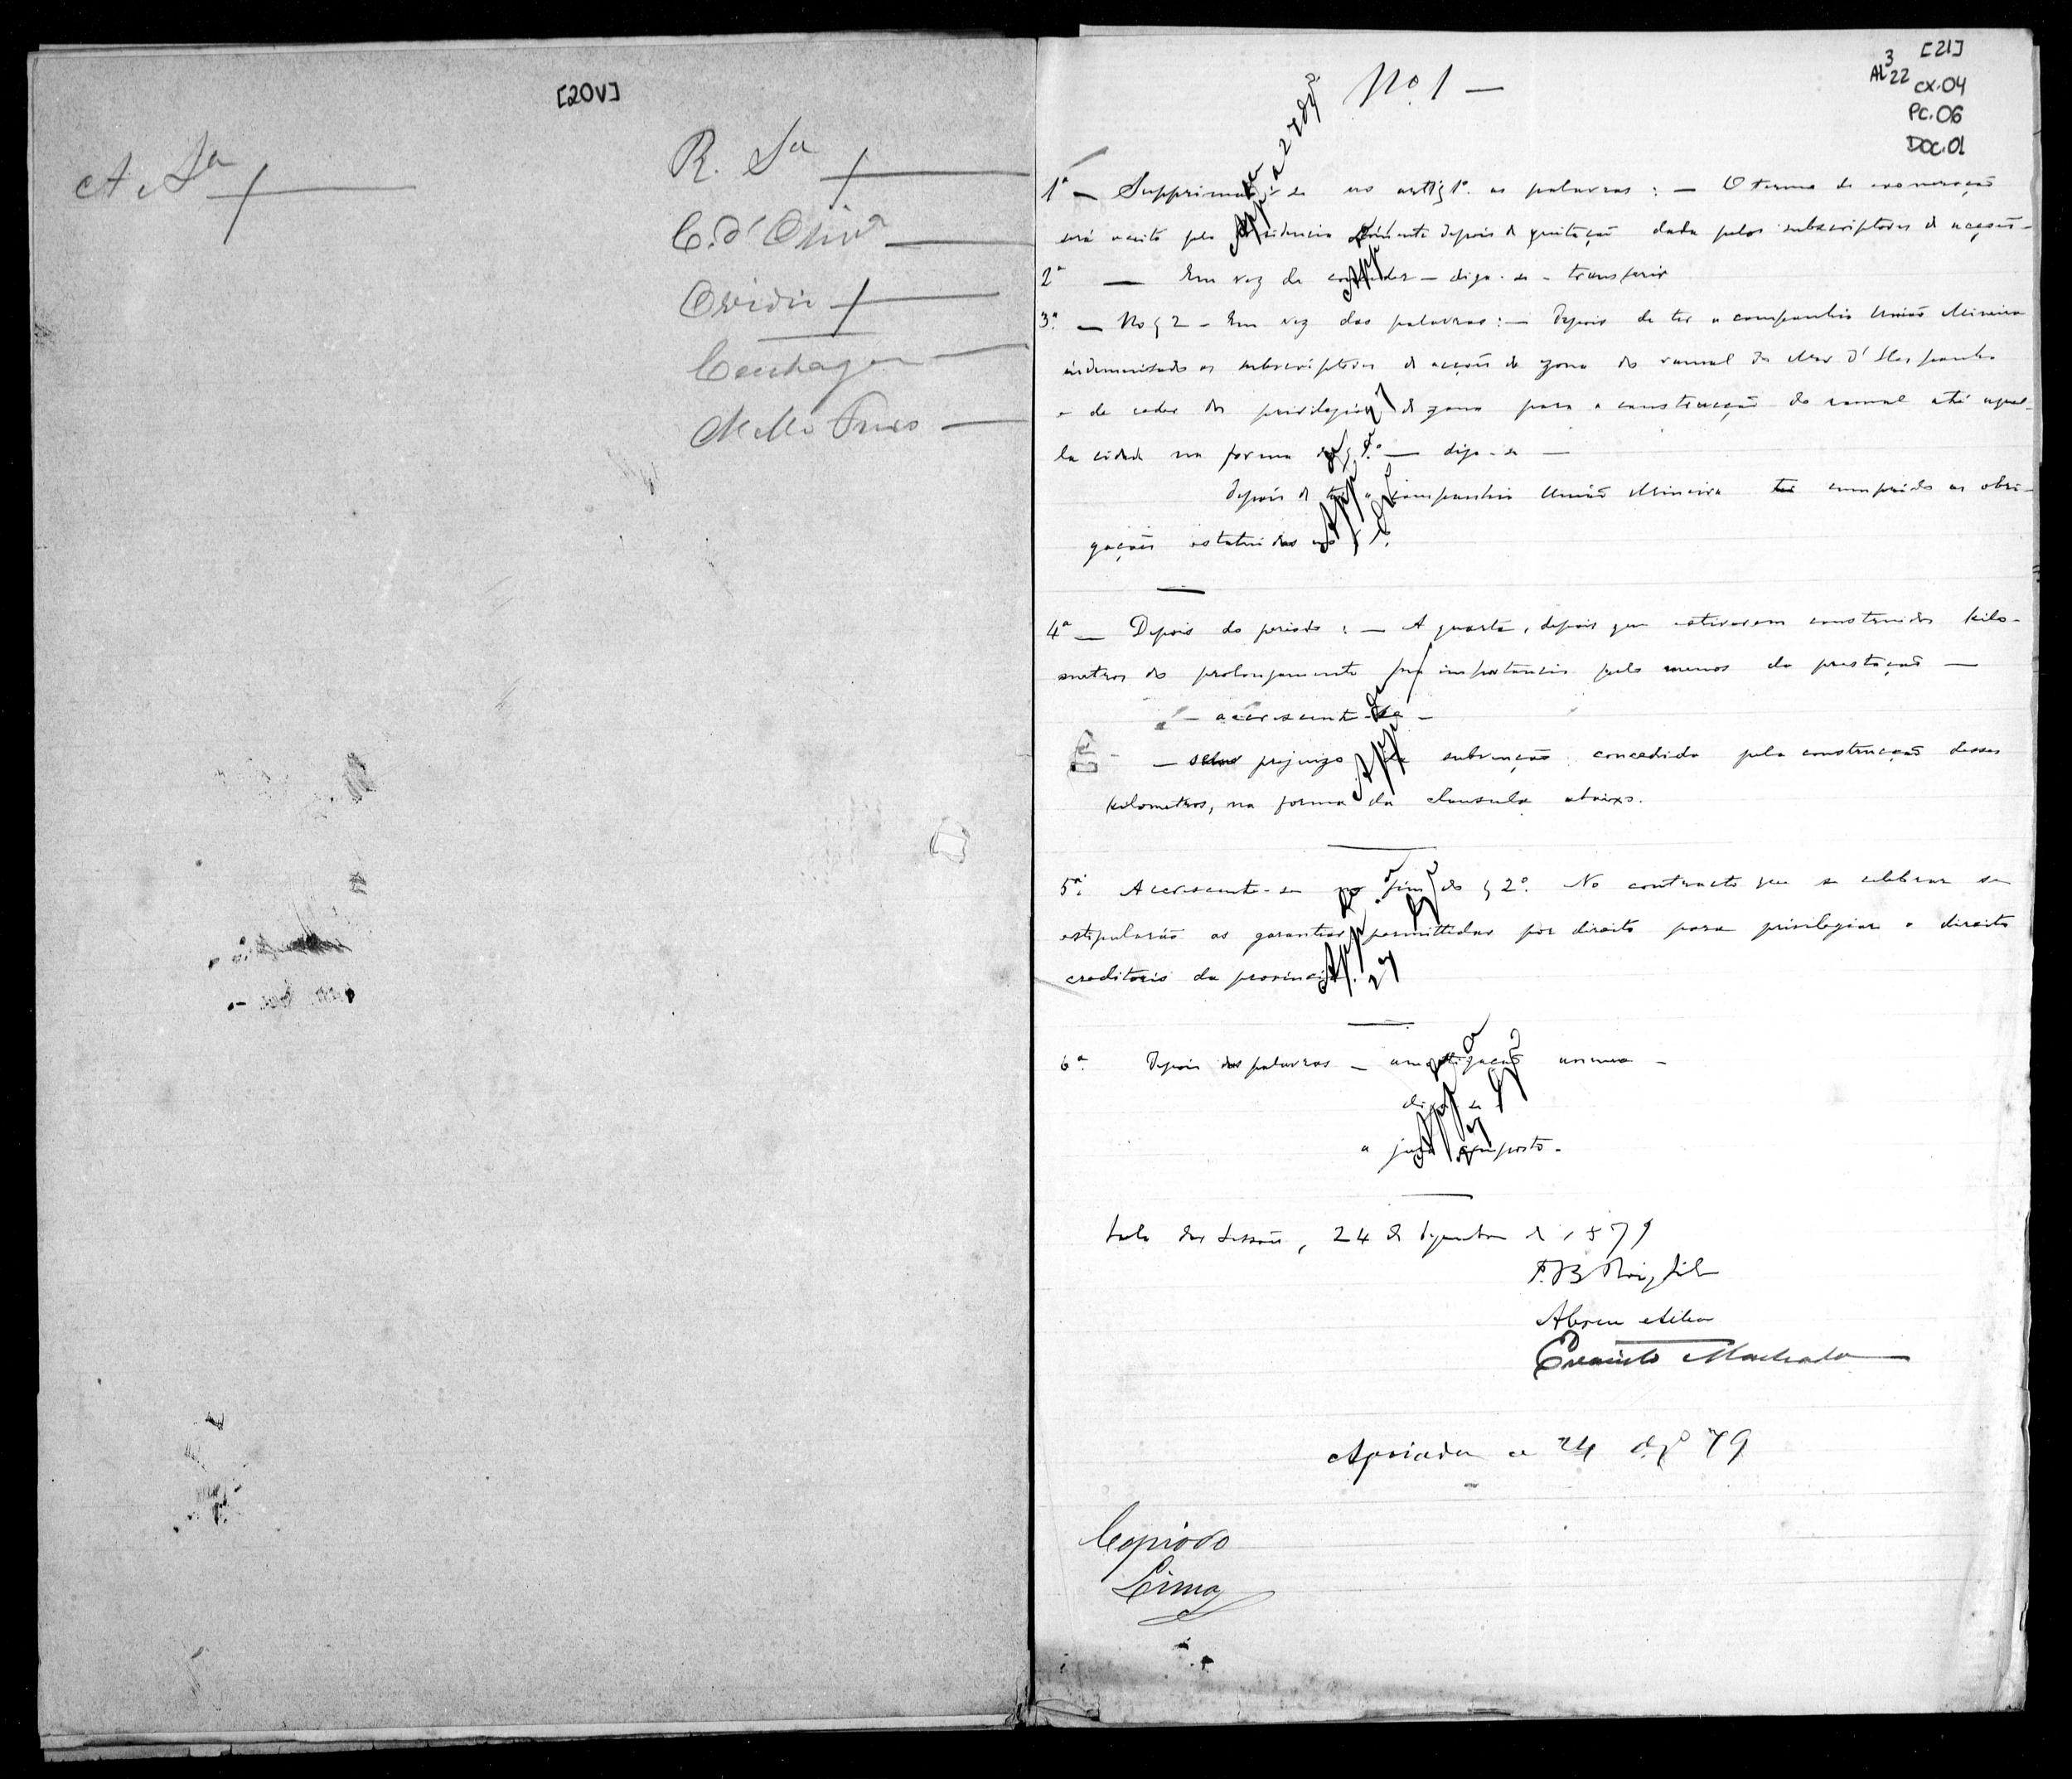 [20V]
A. Sa
R. Sa
C. d'Olivr.a
Ovidio
Mello Franco
[21]
AL 3 22 CX.04
PC.06
DOC.01
Nº 1 —
1ª — Supprimão-se no art. § 1º. as palavras: — O termo de exoneração
será aceito pela Presidencia somente depois de quitação dada pelos subscriptores de acções —
2ª — Em vez de conceder — diga-se — transferir
3ª — No § 2 — Em vez das palavras: — Depois de ter a companhia União Mineira
indemnisado os subscriptores de acções da zona do ramal do Mar d'Hespanha
e de ceder do privilegio de zona para a construcção do ramal até aquel-
la cidade na forma do § 1.º — diga-se —
Depois de a companhia União Mineira ter cumprido as obri-
gações estatuidas no § 1.
4ª — Depois do periodo: — A quarta, depois que estiverem construidos kilo-
metros do prolongamento importancia pelo menos da prestação —
— accrescente-se —
— salvo prejuizo da subvenção concedida pela construcção desses
kilometros, na forma da clausula abaixo.
5ª. Accrescente-se no fim do § 2º. No contracto que se celebrar se
estipularão as garantias permittidas por direito para privilegiar o direito
creditorio da provincia.
6ª. Depois das palavras — amortização annua —
diga-se
a juro composto.
Sala das Sessões, 24 de Dezembro de 1879
Abreu e Silva
Evaristo Machado
Apoiada a 24 dezº 79
Copiado
Lima